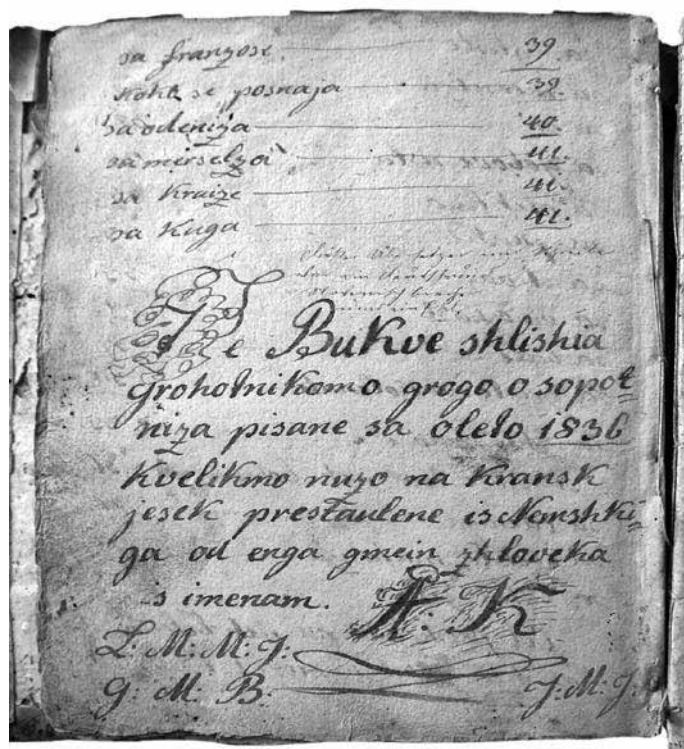 sa franzose 39
koko se posnaja 39.
sa odeniza 40.
sa merselza 41.
sa Kraize 41.
sa Kuga 41.
Te Bukve shlishia
Grohotnikomo grogo o sopot=
niza pisane sa oleto 1836
Kvelikmo nuzo na Kransk
jesek prestaulene is Nemshki=
ga od enga gmein zhloveka
s imenam. A. K
L: M: M: J:
G: M: B: J: M: J: